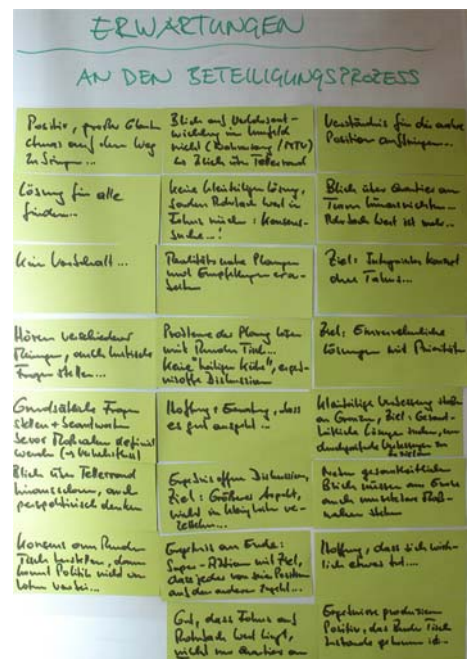 ERWARTUNGEN
AN DEN BETEILIGUNGSPROZESS
Positiv, großer Glaube
etwas auf den Weg
zu bringen...
Lösung für alle
finden...
Kein Vorbehalt...
Hören verschiedener
Meinungen, auch kritische
Fragen stellen...
Grundsätzliche Fragen
stellen + beantworten
bevor Maßnahmen definiert
werden
Blick über Tellerrand
hinausschauen, auch
perspektivisch denken
Konsens am Runden
Tisch herstellen, dann
kommt Politik nicht
vorbei...
Blick auf Verkehrsent-
wicklung im Umfeld
nicht
Blick über Tellerrand
keine kleinteiligen Lösung,
sondern Rohrbach West in
Fokus rücken: Konsens-
suche...!
Realitätsnahe Planungen
und Empfehlungen erar-
beiten
Probleme der Planung lösen
mit Runden Tisch...
Keine "heiligen Kühe", ergeb-
nisoffene Diskussion
Hoffnung: Erwartung, dass
es gut ausgeht...
Ergebnisoffene Diskussion,
Ziel: Größerer Aspekt,
nicht in Kleinigkeiten ver-
zetteln...
Ergebnis am Ende:
mit Ziel,
dass jeder von seiner Position
auf den anderen zugeht...
Gut, dass Fokus auf
Rohrbach West liegt,
nicht nur Quartier am
Verständnis für die andere
Position aufbringen...
Blick über Quartier am
Turm hinausrichten...
Rohrbach West ist mehr...
Ziel: Integriertes Konzept
Ziel: Einvernehmliche
Lösungen mit Priorität
Kleinteilige Verbesserung stoßen
an Grenzen, Ziel: Gesamt-
Lösungen finden, um
Verbesserungen zu
erzielen
Neben gesamtheitlichen
Blick müssen am Ende
auch umsetzbare Maß-
nahmen stehen
Hoffnung, dass sich wirk-
lich etwas tut...
Ergebnisse produzieren
Positiv, dass Runder Tisch
zustande gekommen ist...